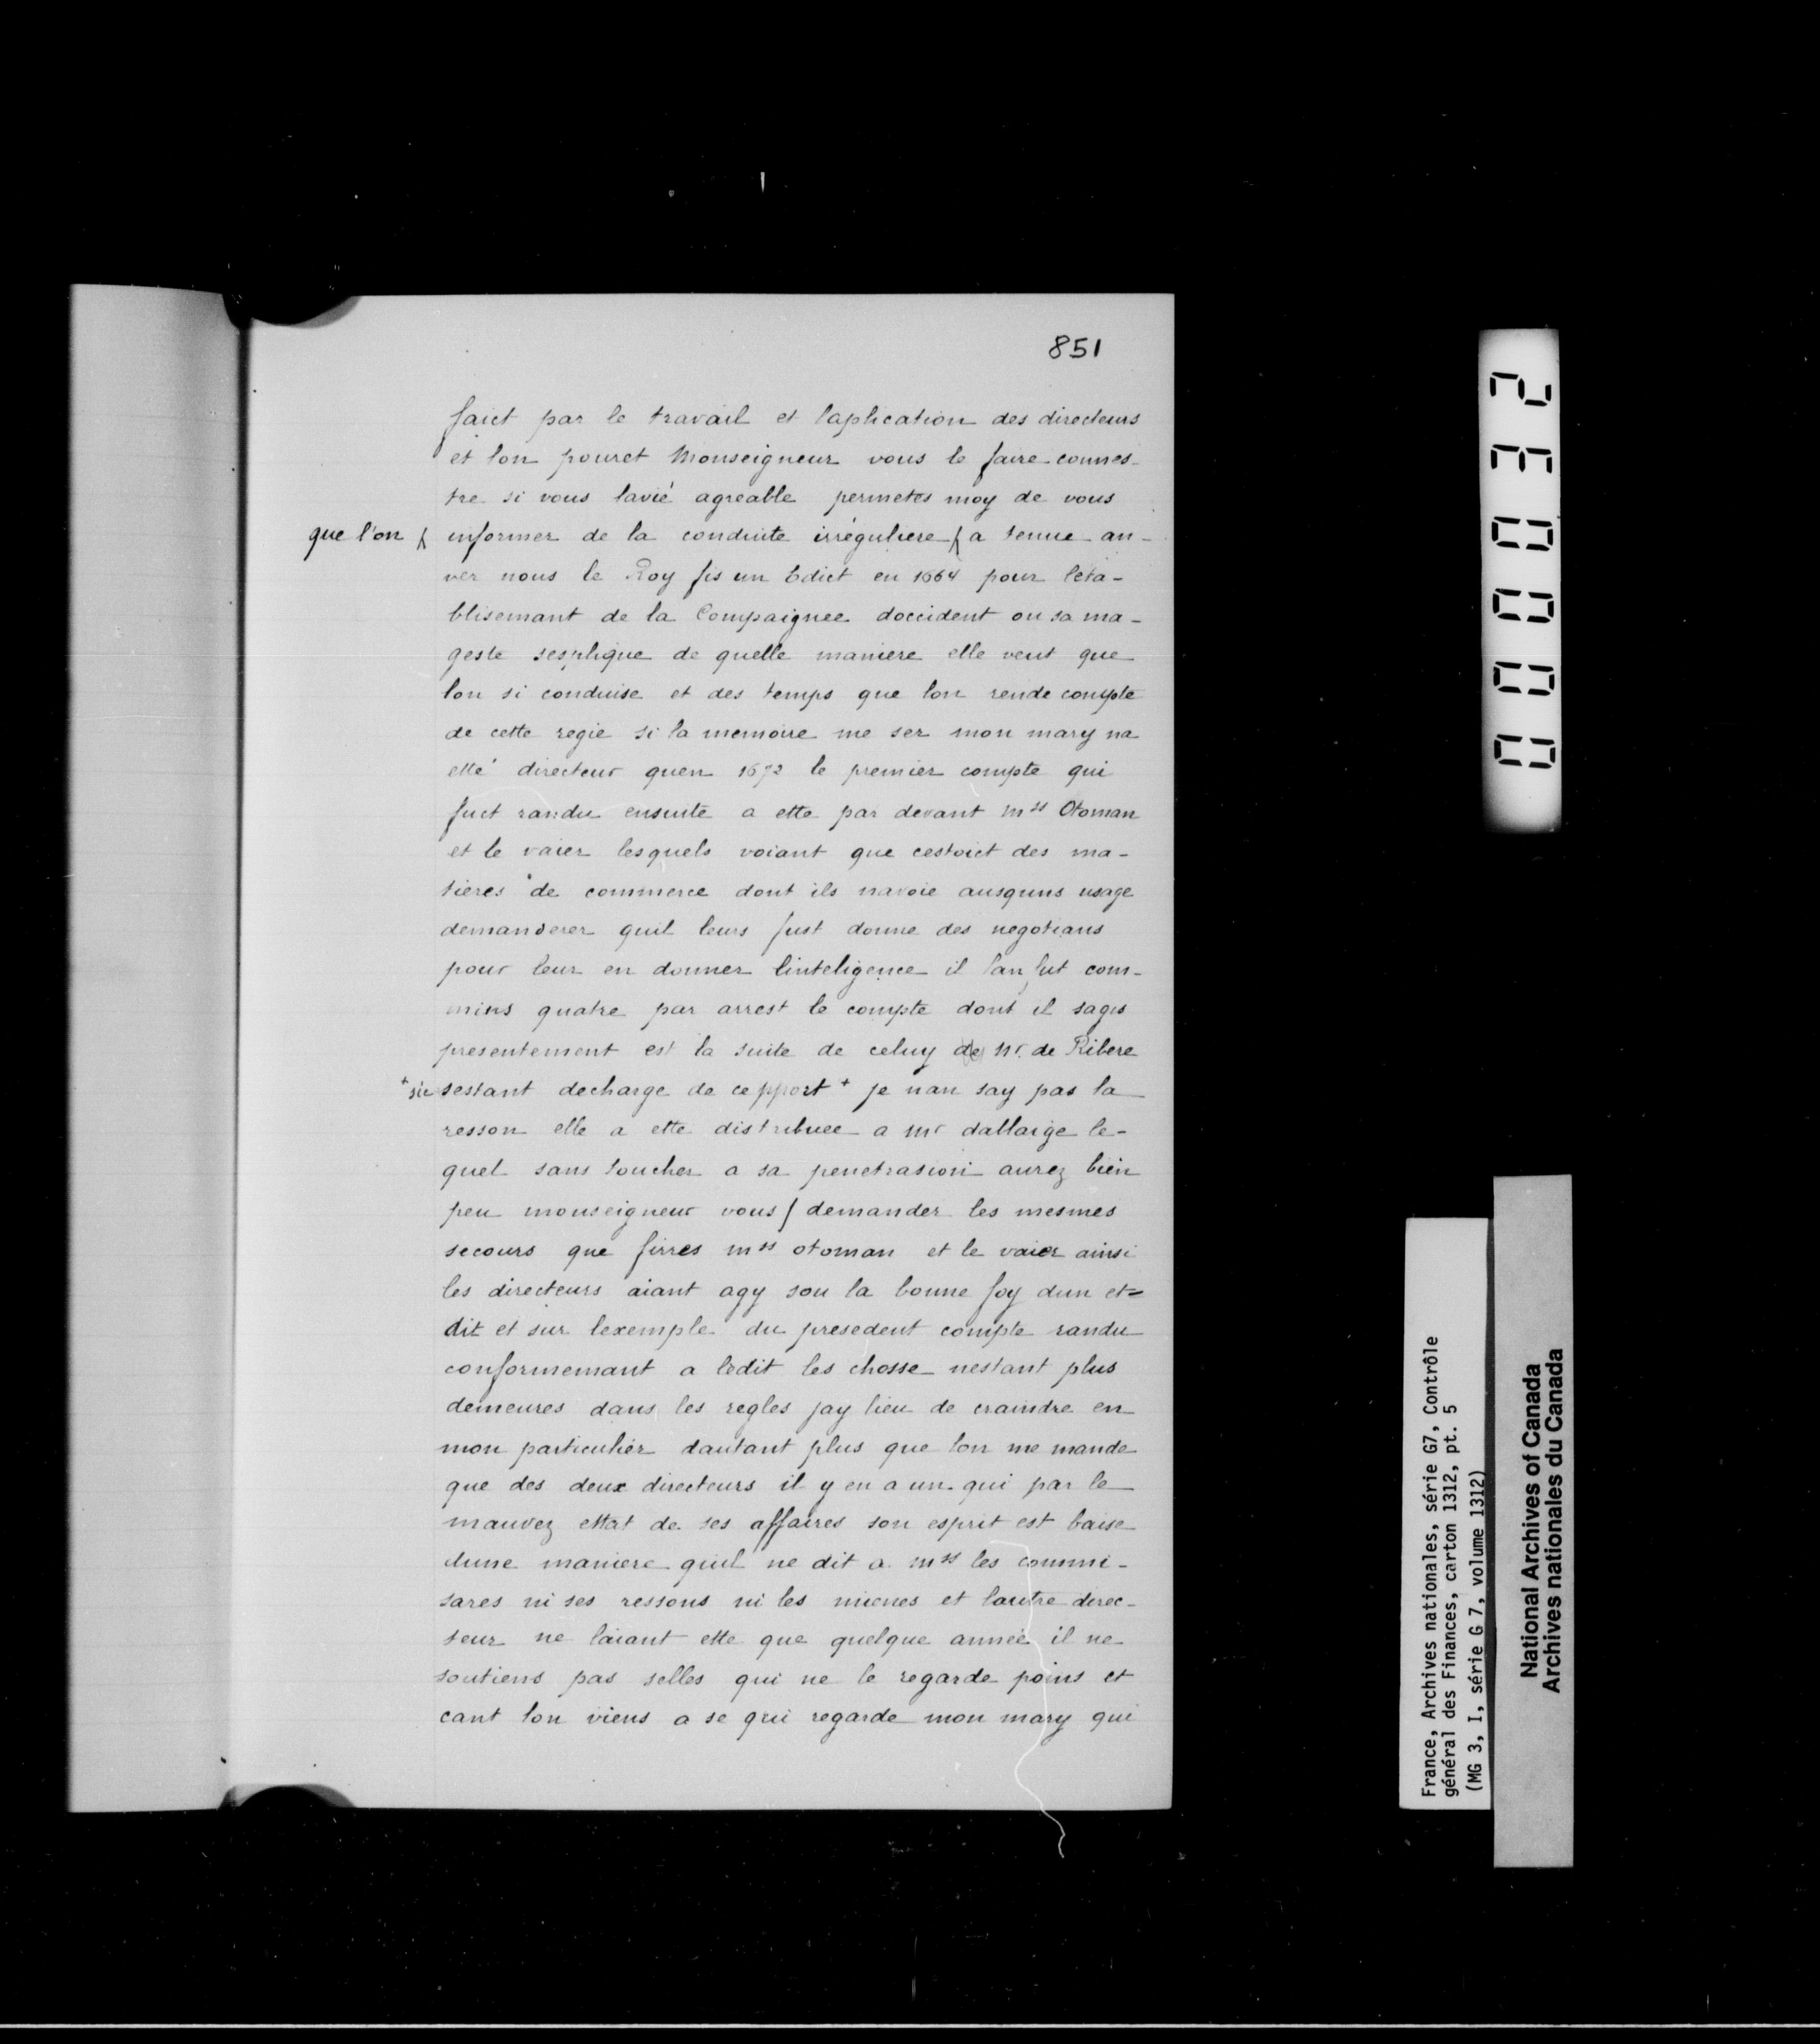 851
faict par le travail et laplication des directeurs
et lon pouret Monseigneur vous le faire connes-
tre si vous lavié agreable permetes moy de vous
que l'on informer de la conduite irréguliere a tenue an-
ver nous le Roy fis un Edict en 1664 pour leta-
blisemant de la Compaignee doccident ou sa ma-
geste sesplique de quelle maniere elle veut que
lon si conduise et des temps que lon rende compte
de cette regie si la memoire me ser mon mary na
etté directeur quen 1672 le premier compte qui
fuct randu ensuite a ette par devant mrs Otoman
et le vaier lesquels voiant que cestoict des ma-
tieres de commerce dont ils navoie ausquns usage
demanderer quil leurs fust donne des negotians
pour leur en donner linteligence il lan fut com-
mins quatre par arrest le compte dont il sagis
presentement est la suite de celuy de Mr. de Ribere
+ sic sestant decharge de ce pport + je nan say pas la
resson elle a ette distribuee a mr dallaige le-
quel sans toucher a sa penetrasion aurez bien
peu monseigneur vous / demander les mesmes
secours que firres mrs otoman et le vaier ainsi
les directeurs aiant agy sou la bonne foy dun et=
dit et sur lexemple du presedent compte randu
conformemant a ledit les chosse nestant plus
demeures dans les regles jay lieu de craindre en
mon particulier dautant plus que lon me mande
que des deux directeurs il y en a un qui par le
mauvez ettat de ses affaires son esprit est baise
dune maniere quil ne dit a mrs les commi-
sares ni ses ressons ni les mienes et lautre direc-
teur ne laiant ette que quelque année il ne
soutiens pas selles qui ne le regarde poins et
cant lon viens a se qui regarde mon mary qui
00032
France, Archives nationales, série G7, Contrôle
général des Finances, carton 1312, pt. 5
(MG 3, I, série G 7, volume 1312)
National Archives of Canada
Archives nationales du Canada